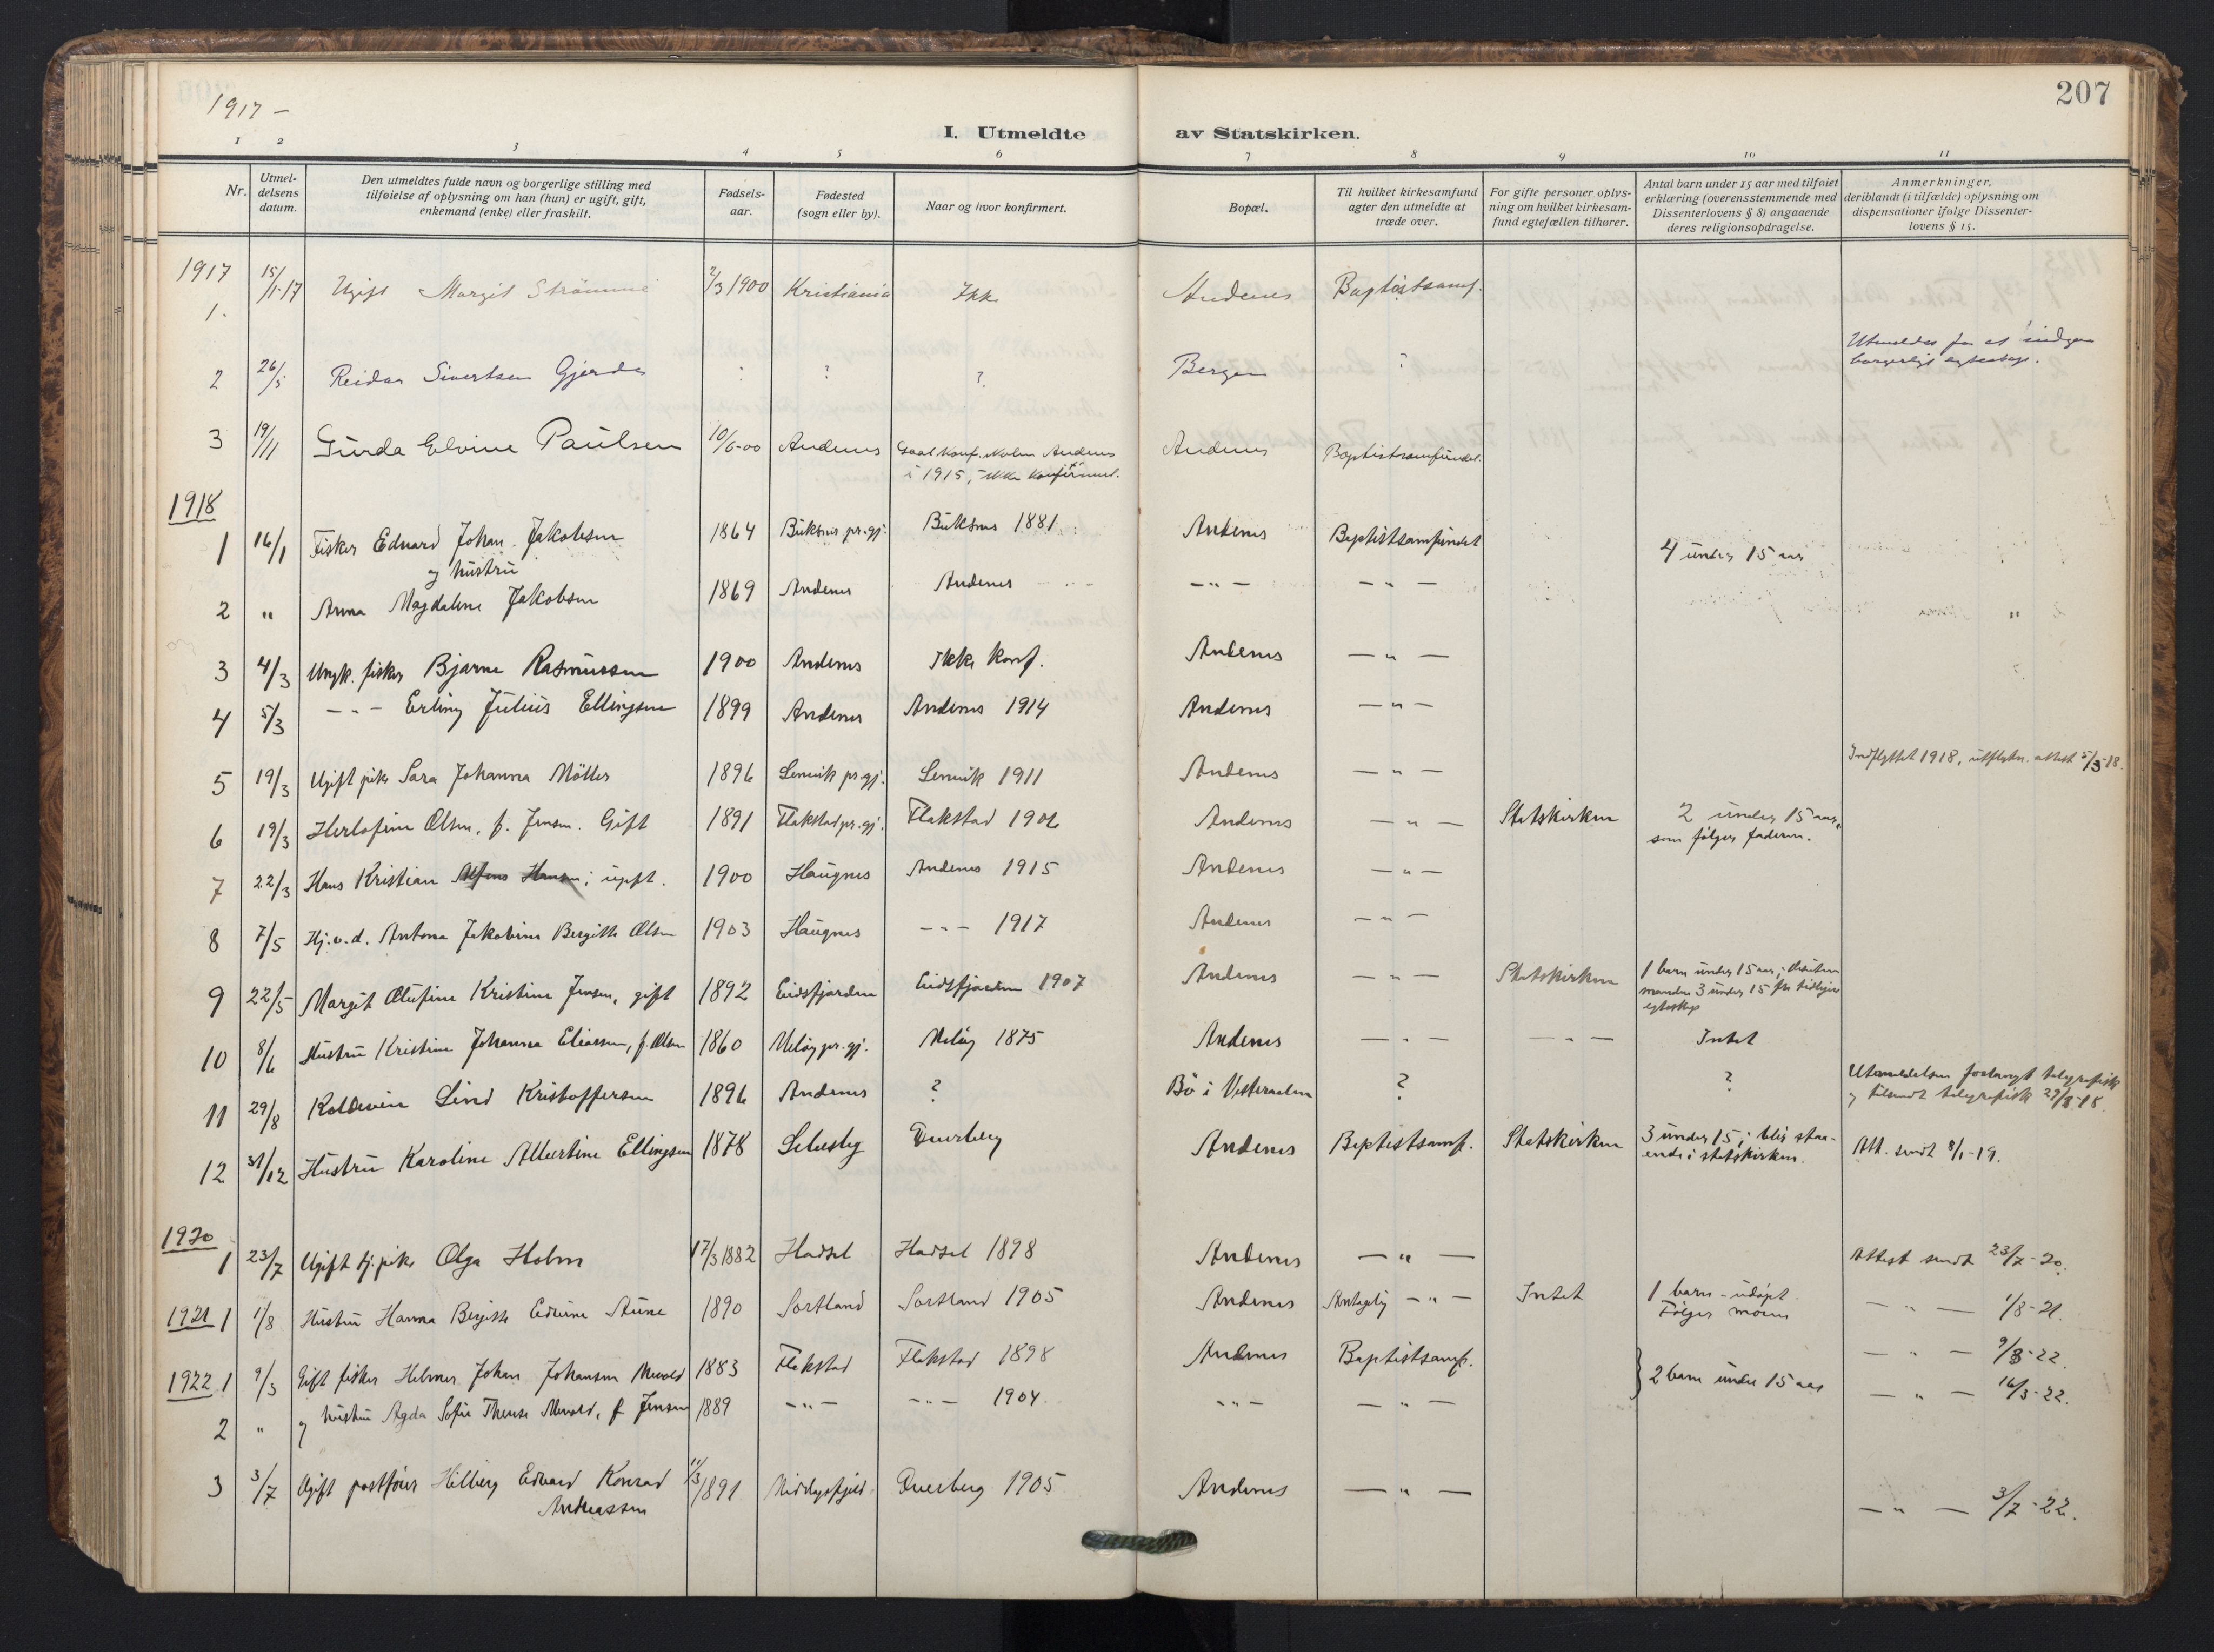 207
1917 –
I. Utmeldte av Statskirken.
1 2 3 4 5 6 7 8 9 10 11
Nr.
Utmel-
delsens
datum.
Den utmeldtes fulde navn og borgerlige stilling med
tilføielse af oplysning om han (hun) er ugift, gift,
enkemand (enke) eller fraskilt.
Fødsels-
aar.
Fødested
(sogn eller by).
Naar og hvor konfirmert.
Bopæl.
Til hvilket kirkesamfund
agter den utmeldte at
træde over.
For gifte personer oplys-
ning om hvilket kirkesam-
fund egtefællen tilhører.
Antal barn under 15 aar med tilføiet
erklæring (overensstemmende med
Dissenterlovens § 8) angaaende
deres religionsopdragelse.
Anmerkninger,
deriblandt (i tilfælde) oplysning om
dispensationer ifølge Dissenter-
lovens § 15.
1917
1. 15/1-17 Ugift Margit Strømme 2/3 1900 Kristiania Ikke Andenes Baptistsamf.
2 26/5 Reidar Sivertsen Gjerde : ? ? Bergen ? Utmeldes for at indgaa
borgerligt egteskap.
3 19/11 Gurda Elvine Paulsen 10/6-00 Andenes Andenes Baptistsamfundet
i 1915, ikke konfirmert.
1918
1 16/1 Fisker Edvard Johan Jakobsen 1864 Buksnes pr.gj. Buksnes 1881 Andenes Baptistsamfundet 4 under 15 aar
og hustru
2 " Anna Magdalene Jakobsen 1869 Andenes Andenes – " – – " –
3 4/3 Ungk. fisker Bjarne Rasmussen 1900 Andenes Ikke konf. Andenes – " –
4 5/3 – " – Erling Julius Ellingsen 1899 Andenes Andenes 1914 Andenes – " –
5 19/3 Ugift pike Sara Johanna Möller 1896 Lenvik pr.gj. Lenvik 1911 Andenes – " – Indflyttet 1918, utflytn. attest 5/3-18.
6 19/3 Herlofine Olsen, f. Jensen. Gift 1891 Flakstad pr.gj. Flakstad 1906 Andenes – " – Statskirken 2 under 15 aar,
som følger faderen.
7 22/3 Hans Kristian Hansen; ugift. 1900 Haugnes Andenes 1915 Andenes – " –
8 7/5 Hj.v.d. Antona Jakobine Bergitte Olsen 1903 Haugnes – " – 1917 Andenes – " –
9 22/5 Margit Olufine Kristine Jensen, gift 1892 Eidsfjorden Eidsfjorden 1907 Andenes – " – Statskirken 1 barn under 15 aar; desuten
manden 3 under 15 fra tidligere
egteskap
10 8/6 Hustru Kristine Johanna Eliassen, f. Olsen 1860 Meløy pr.gj. Meløy 1875 Andenes – " – – " – Intet
11 29/8 Koldevin Lind Kristoffersen 1896 Andenes ? Bö i Vesteraalen ? ? Utmeldelsen forlangt telegrafisk
og tilsendt telegrafisk 29/8-18.
12 31/12 Hustru Karoline Albertine Ellingsen 1878 Lebesby Dverberg Andenes Baptistsamf. Statskirken 3 under 15; blir staa-
ende i statskirken. Att. sendt 8/1-19.
1920
1 23/7 Ugift tj.pike Olga Holm 17/3 1882 Hadsel Hadsel 1898 Andenes – " – Attest sendt 23/7-20.
1921 1 1/8 Hustru Hanna Bergitte Edvine Aune 1890 Sortland Sortland 1905 Andenes Antagelig – " – Intet 1 barn – udøpt.
Følger moren – " – 1/8-21.
1922 1 9/3 Gift fisker Helmer Johan Johansen 1883 Flakstad Flakstad 1898 Andenes Baptistsamf. 2 barn under 15 aar – " – 9/3-22.
2 " og hustru Agda Sofie Therese f. Jensen 1889 – " – – " – 1904. – " – – " – – " – 16/3-22.
3 3/7 Ugift postfører Hilberg Edvard Konrad 11/3 1891 Middagsfjeld Dverberg 1905 Andenes – " – – " – 3/7-22.
Andreassen